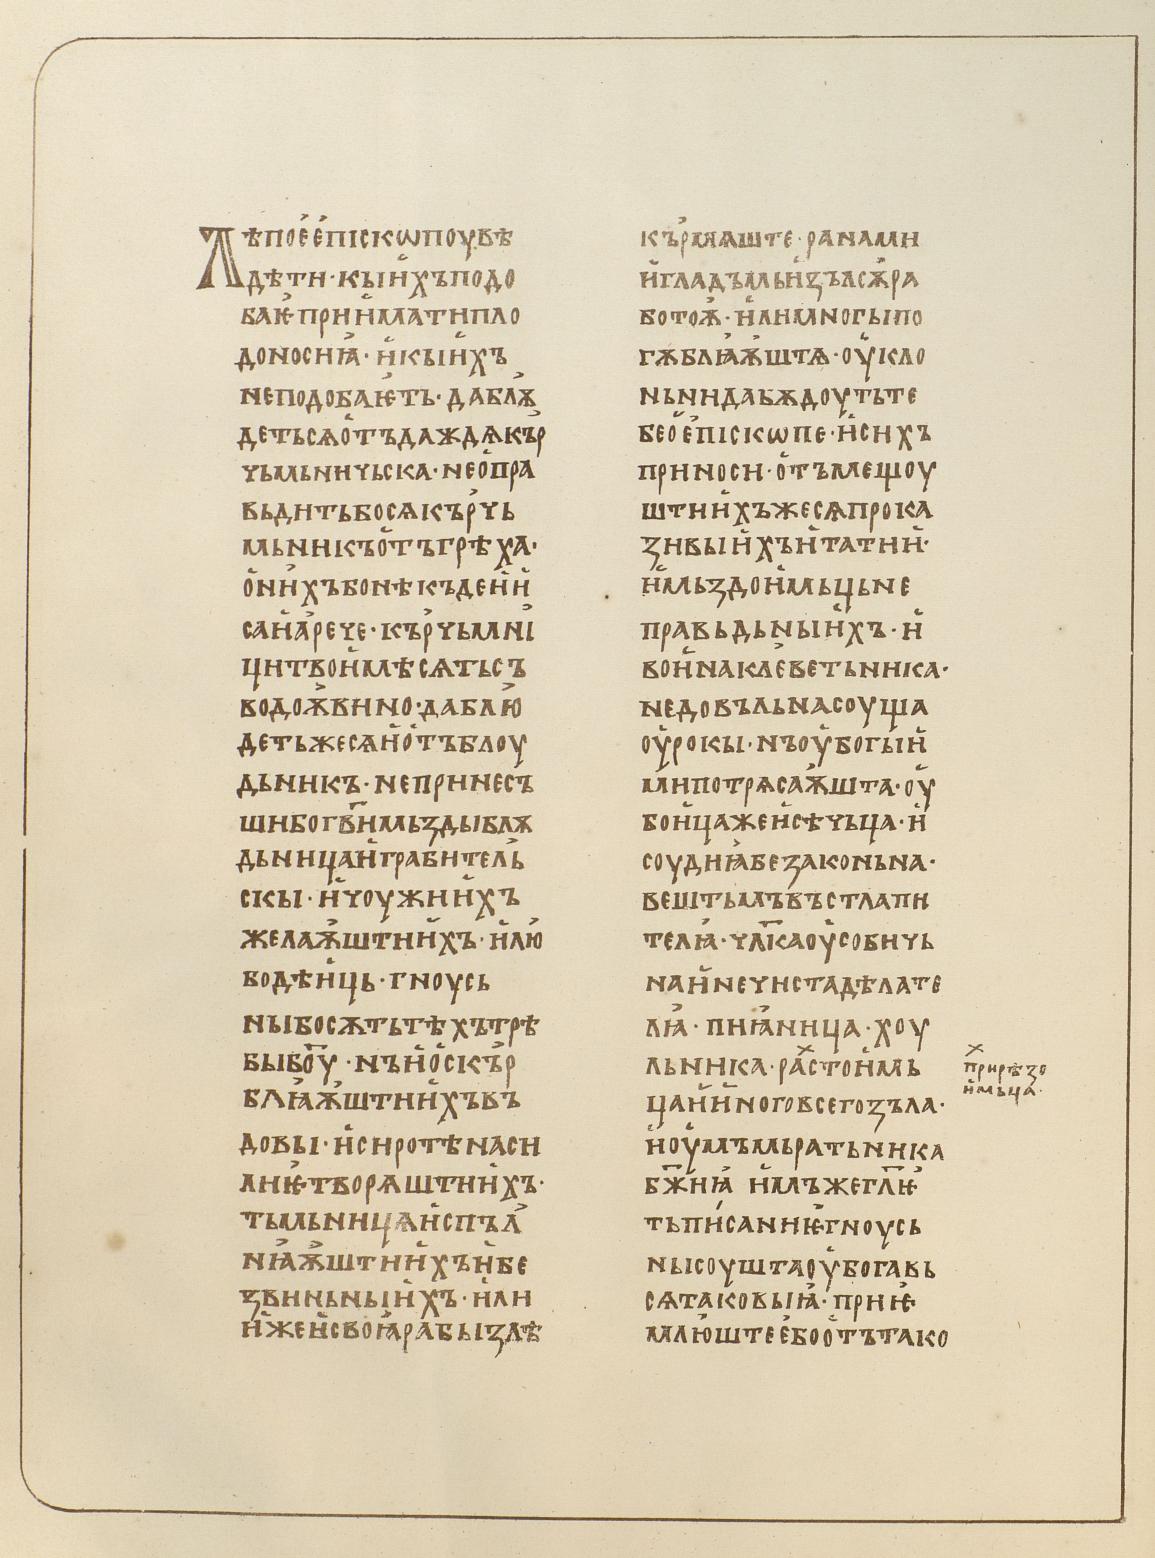 Лѣпоѥ́ ѥ́пІскѡпоувѣ
дѣти· кыи҆хъподо
баѥ҆· прии҆матипло
доносиꙗ҆· и҆кыи҆хъ
неподобаѥ҆тъ· даблѫ
детьсѧо҆тъдаждѧкър҆
чьмьничьска· нео҆пра
вьдитьбосѧкър҆чь
мьникъо҆тъгрѣха·
о҆ни҆хъбонѣкъдеи҆и҆
саи҆ꙗ҆рече· кър҆чьмні
цитвои҆мѣсѧтьсъ
водоѫ҆вино· даблю҆
детьжесѧи҆о҆тъблоу
дьникъ· непринесъ
шибогв҃и҆мьздыблѫ
дьницаи҆грабитель
скы· и҆чоужии҆хъ
желаѫ҆штии҆хъ· и҆лю҆
бодѣи҆ць· гноусь
ныбосѫтьтѣхътрѣ
быбо҃у· нъи҆о҆скър҆
блꙗ҆ѫ҆штии҆хъвъ
довы· и҆сиротѣнаси
лиѥ҆· творѧштии҆хъ·
тьмьницѧи҆спъл҆
нꙗ҆ѫ҆штии҆хъи҆бе
звиньныи҆хъ· и҆ли
и҆жеи҆своꙗ҆рабызлѣ
кър҆мѧѧште· ранами
и҆гладъмьи҆зълсѫ҆ра
ботоѫ҆· и҆лимногыпо
гѫблꙗ҆ѫ҆штѧ· оу҆кло
ньнидабѫдоутьте
бео҆е҆пІскѡпе· и҆сихъ
приноси· о҆тъмещоу
штии҆хъжесѧпрока
зивыи҆хъи҆татии҆·
и҆мьздои҆мьцьне
правьдьныи҆хъ· и҆
вои҆наклеветьника·
недовъльнасоуща
оу҆рокы· нъоу҆богыи҆
мипотрѧсаѫ҆шта· оу҆
бои҆цажеи҆сѣчьца· и҆
соудиꙗ҆безаконьна·
вештьмъвъстлапи
телꙗ҆· чл҃каоу҆собичь
наи҆нечистадѣлате
лꙗ҆· пиꙗ҆ница· хоу
льника· рас҆тои҆мь
цаи҆и҆ноговсегозъла·
и҆оу҆мъмьратьника
бж҃иꙗ҆ и҆мъжегл҃ѥ҆
тьписаниѥ҆гноусь
нысоуштаоу҆богавь
сѧтаковыꙗ҆· приѥ҆
млю҆штее҆боо҆тътако
прирѣзо
и҆мьца·